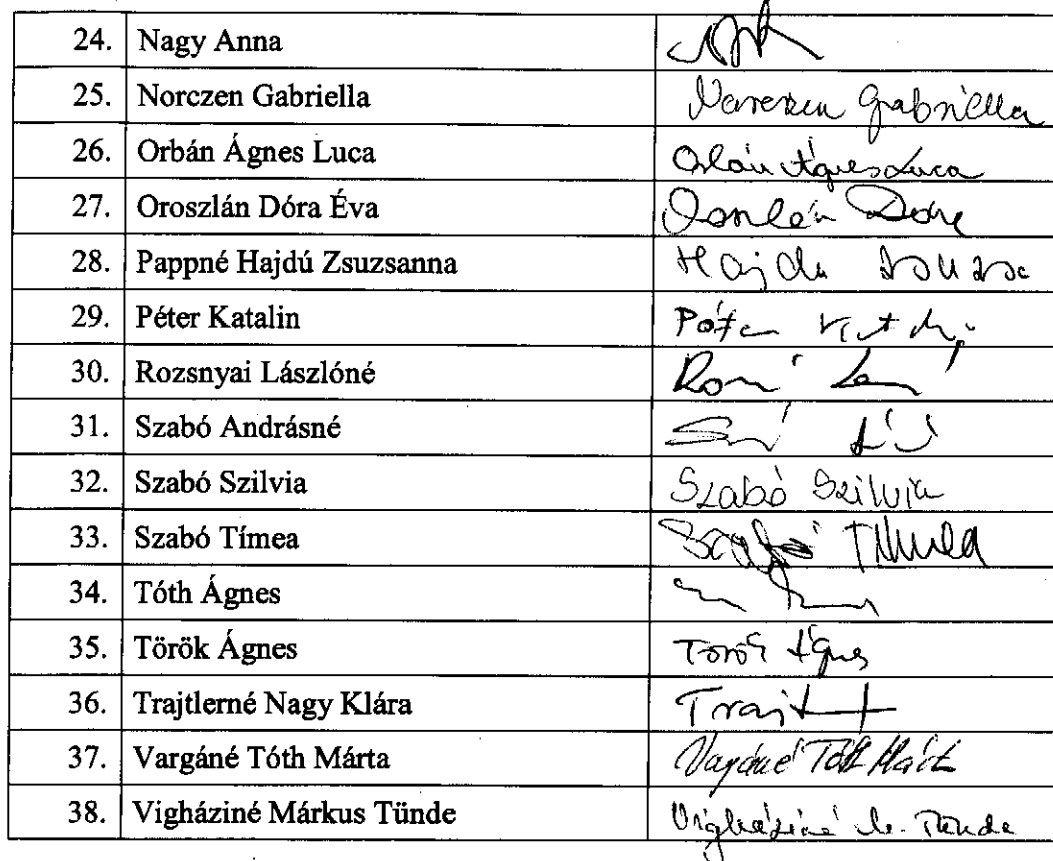 24. Nagy Anna
25. Norczen Gabriella Norczen Gabriella
26. Orbán Ágnes Luca Orbán Ágnes Luca
27. Oroszlán Dóra Éva Oroszlán Dóra
28. Pappné Hajdú Zsuzsanna Hajdu Zsuzsa
29. Péter Katalin Péter
30. Rozsnyai Lászlóné
31. Szabó Andrásné
32. Szabó Szilvia Szabó Szilvia
33. Szabó Tímea Szabó Tímea
34. Tóth Ágnes
35. Török Ágnes Török Ágnes
36. Trajtlerné Nagy Klára Trajt
37. Vargáné Tóth Márta Vargáné Tóth Márta
38. Vigháziné Márkus Tünde Vigháziné M. Tünde